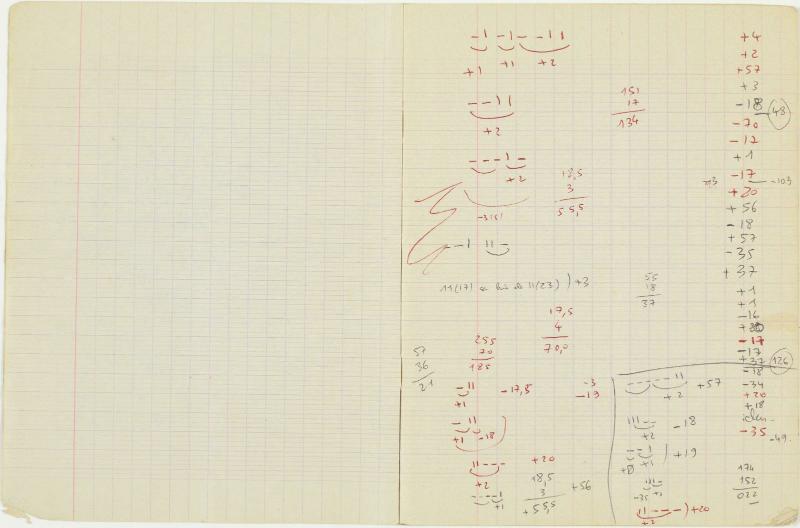 +1 +1 +2
+2
151
17
134
+2
18,5
3
55,5
11(17) 11(23) ) +3
55
18
37
17,5
4
70,0
255
70
185
57
36
21
+1
-17,5
-3
-19
+1 -18
+2
+20
+1
18,5
3
+55,5
+56
+4
+2
+57
+3
-18
-48
-70
-17
+1
-17
-103
+20
+56
-18
+57
-35
+37
+1
+1
-16
-17
-17
+37
126
-18
-34
+20
+18
-35
-49
+2 +57
+2 -18
+1 +19
-35 +2
+2 +20
174
152
022